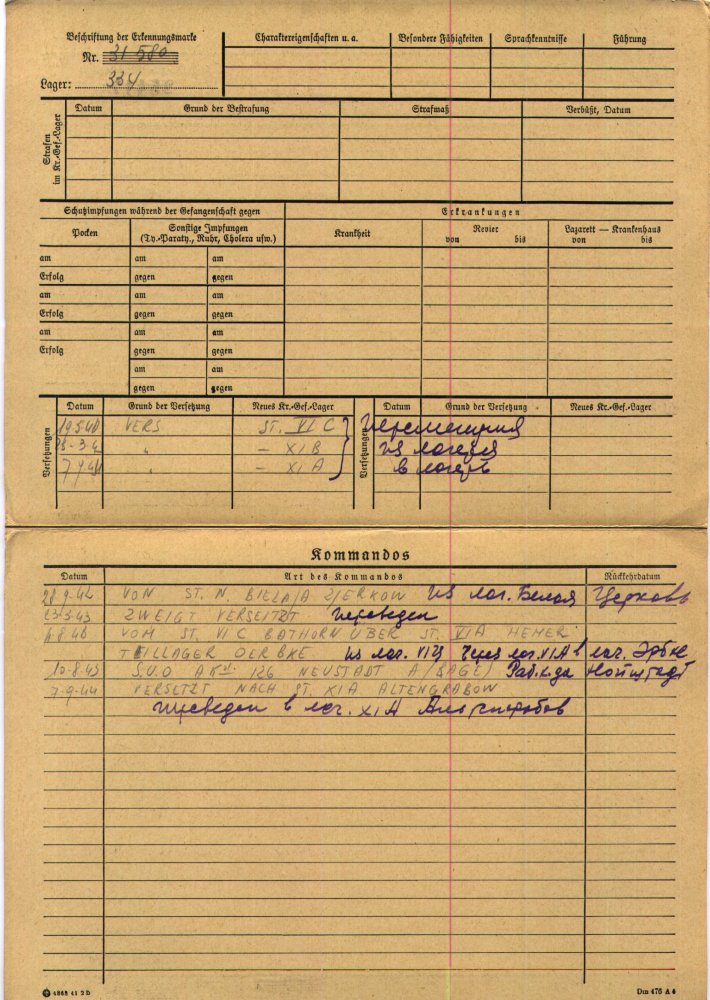 Beschriftung der Erkennungsmarke
Nr. 31 580
Lager: 334
Charaktereigenschaften u. a.
Besondere Fähigkeiten
Sprachkenntnisse
Führung
Strafen im Kr.-Gef.-Lager
Datum
Grund der Bestrafung
Strafmaß
Verbüßt, Datum
Schutzimpfungen während der Gefangenschaft gegen
Erkrankungen
Pocken
Sonstige Impfungen
(Ty.-Paraty., Ruhr, Cholera usw.)
Krankheit
Revier
von bis
Lazarett — Krankenhaus
von bis
am am am
Erfolg gegen gegen
am am am
Erfolg gegen gegen
am am am
Erfolg gegen gegen
am am
gegen gegen
Versetzungen
Datum Grund der Versetzung Neues Kr.-Gef.-Lager
VERS ST. VI C
" — XI B
" — XI A
Versetzungen
Datum Grund der Versetzung Neues Kr.-Gef.-Lager
из лагеря
в лагерь
Kommandos
Datum Art des Kommandos Rückkehrdatum
28.9.42 VON ST. N. BIELAJA ZJERKOW из лаг. Белая Церковь
23.3.43 ZWEIGT VERSEITZT переведен
VOM ST. VI C BATHORN ÜBER ST. VI A HEMER
TEILLAGER OERBKE из лаг. VIЦ через лаг. VI A в лаг. Эрбке
10.8.43 126 NEUSTADT A/ Раб. к-да Нойштадт
7.9.44 VERSETZT NACH ST. XI A ALTENGRABOW
переведен в лаг. XI A Альтенграбов
4868 41 2 D
Dm 476 A 6